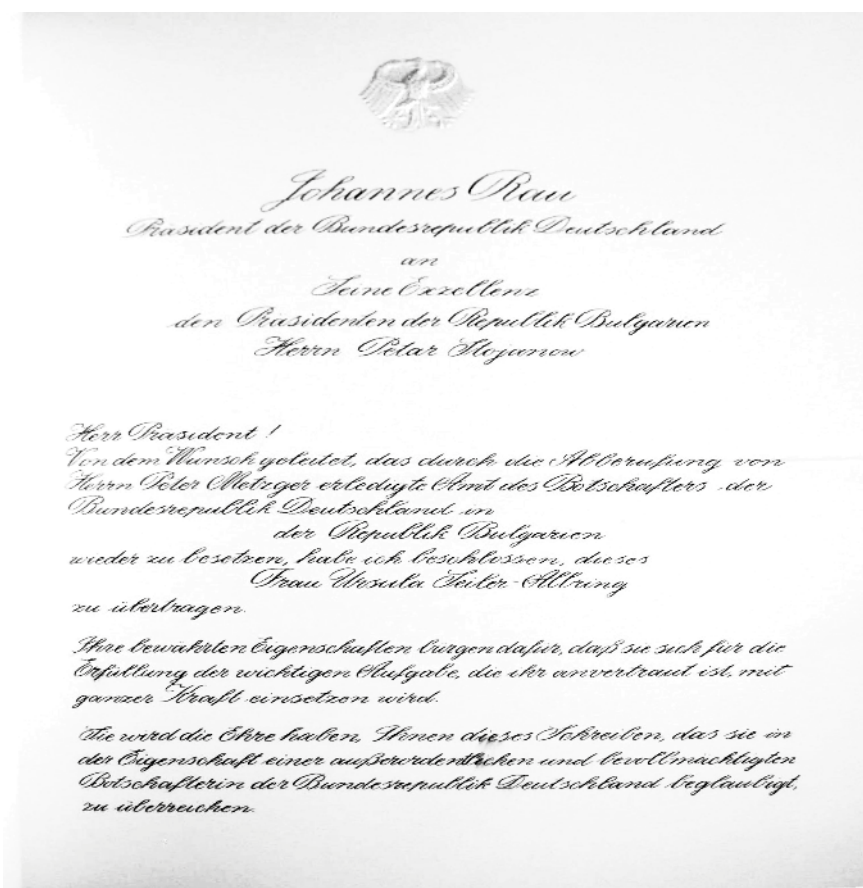 Johannes Rau
Präsident der Bundesrepublik Deutschland
an
Seine Exzellenz
den Präsidenten der Republik Bulgarien
Herrn Petar Stojanow
Herr Präsident !
Von dem Wunsch geleitet, das durch die Abberufung von
Herrn Peter Metzger erledigte Amt des Botschafters der
Bundesrepublik Deutschland in
der Republik Bulgarien
wieder zu besetzen, habe ich beschlossen, dieses
Frau Ursula Seiler-Albring
zu übertragen.
Ihre bewährten Eigenschaften bürgen dafür, daß sie sich für die
Erfüllung der wichtigen Aufgabe, die ihr anvertraut ist, mit
ganzer Kraft einsetzen wird.
Sie wird die Ehre haben, Ihnen dieses Schreiben, das sie in
der Eigenschaft einer außerordentlichen und bevollmächtigten
Botschafterin der Bundesrepublik Deutschland beglaubigt,
zu überreichen.